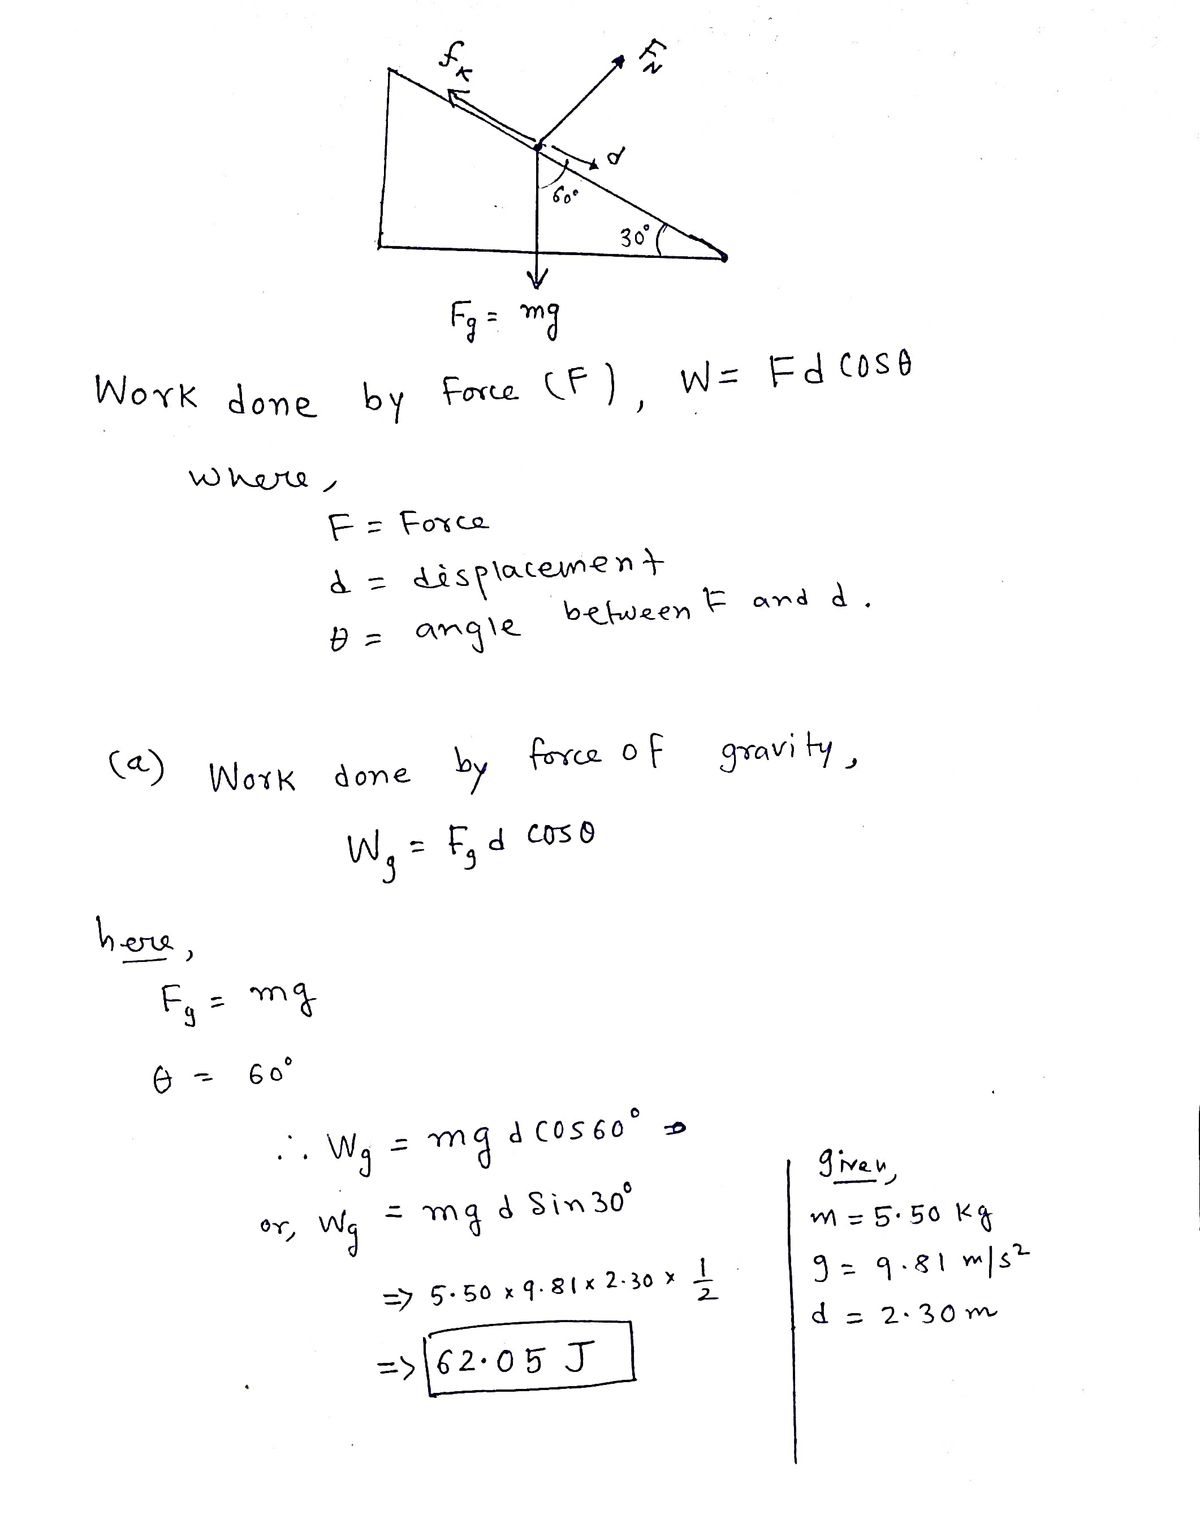 fK
FN
d
60°
30°
Fg = mg
Work done by Force (F), W = Fd cosθ
where,
F = Force
d = displacement
θ = angle between F and d.
(a) Work done by force of gravity,
Wg = Fg d cosθ
here,
Fg = mg
θ = 60°
∴ Wg = mg d cos60°
or, Wg = mg d Sin30°
=> 5.50 x 9.81 x 2.30 x 1/2
=> 62.05 J
given,
m = 5.50 kg
g = 9.81 m/s²
d = 2.30 m